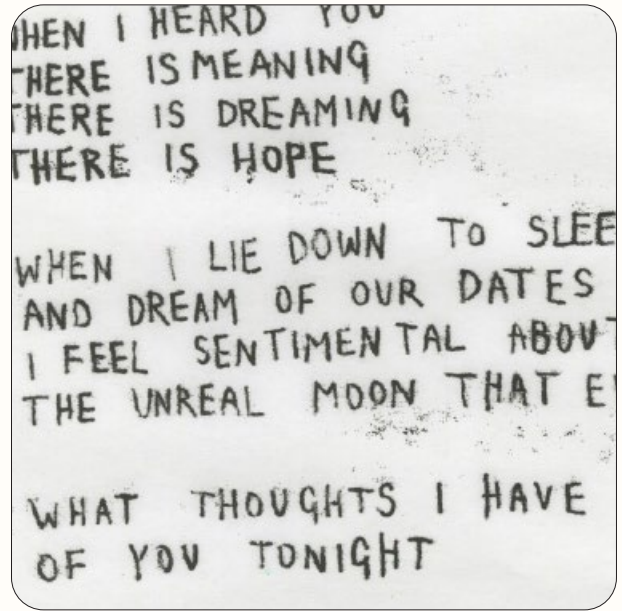 WHEN I HEARD YOU
THERE IS MEANING
THERE IS DREAMING
THERE IS HOPE
WHEN I LIE DOWN TO SLEE
AND DREAM OF OUR DATES
I FEEL SENTIMENTAL ABOUT
THE UNREAL MOON THAT
WHAT THOUGHTS I HAVE
OF YOU TONIGHT